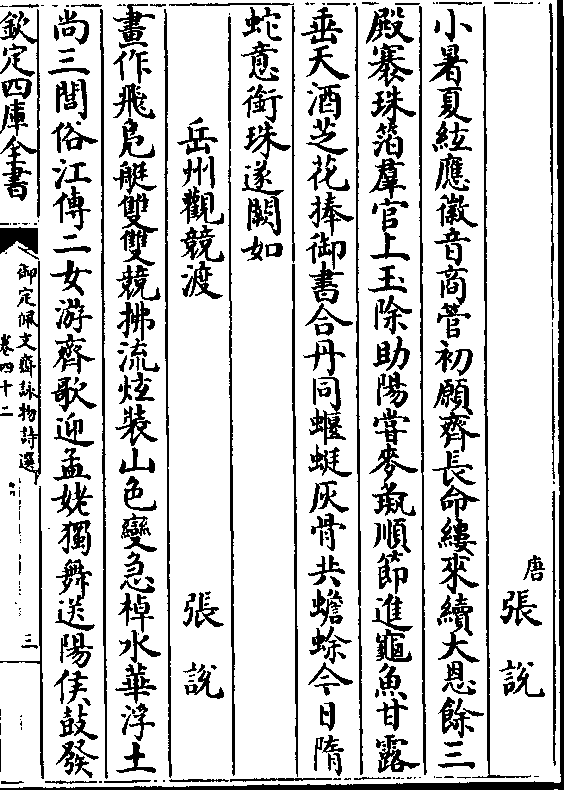 唐 張說
小暑夏絃應徽音商管初願齊長命縷來續大恩餘三
殿褰珠箔羣官上玉除助陽嘗麥彘順節進龜魚甘露
垂天酒芝花捧御書合丹同蝘蜓灰骨共蟾蜍今日隋
蛇意銜珠遂闕如
岳州觀競渡 張說
畫作飛鳧艇雙雙競拂流炫裝山色變急棹水華浮土
尚三閭俗江傳二女游齊歌迎孟姥獨舞送陽侯鼓發
欽定四庫全書
御定佩文齋詠物詩選
卷四十二
三